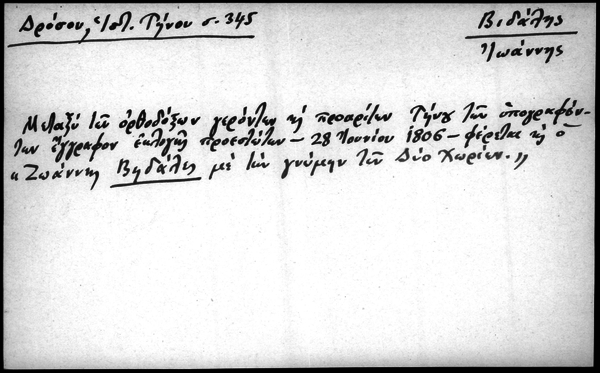 Δρόσου, Ἱστ. Τήνου σ. 345
Βιδάλης
Ἰωάννης
Μεταξύ τῶν ὀρθοδόξων γερόντων κ̀ προκρίτων Τήνου τῶν ὑπογραφόν-
των ἔγγραφον ἐκλογῆς προεστώτων – 28 Ἰουνίου 1806 – φέρεται κ̀ ὁ
«Ζωάννης Βηδάλης μέ τήν γνώμην τῶν Δύο Χωρίων.»